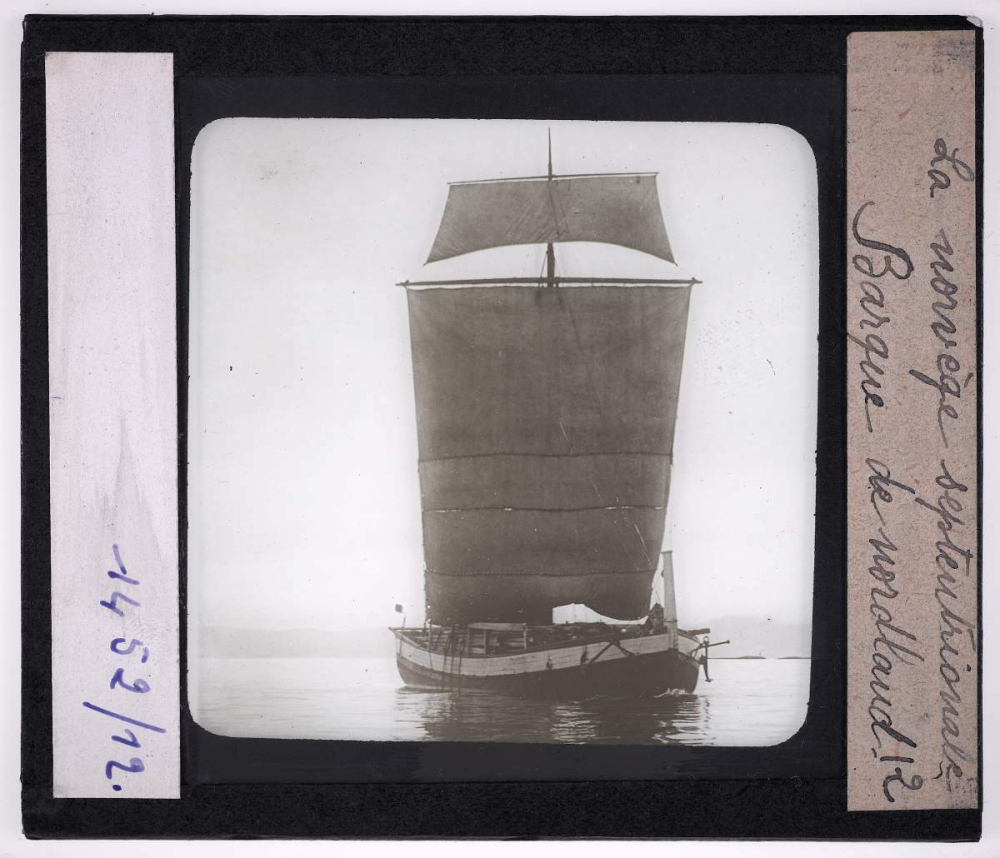 1452/12.
La norvège septentrionale
Barque de nordland 12